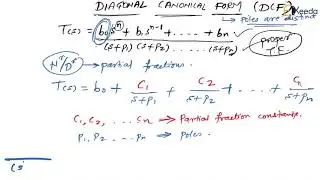 DIAGONAL CANONICAL FORM (DCF)
→ poles are distinct
T(s) = b₀sⁿ + b₁sⁿ⁻¹ + ..... + bₙ
(s+p₁) (s+p₂) .... (s+pₙ)
proper T.F.
Nʳ/Dʳ → partial fractions.
T(s) = b₀ + C₁/(s+p₁) + C₂/(s+p₂) + ... + Cₙ/(s+pₙ)
C₁, C₂, .... Cₙ → Partial fraction constants.
P₁, P₂, .... Pₙ → Poles.